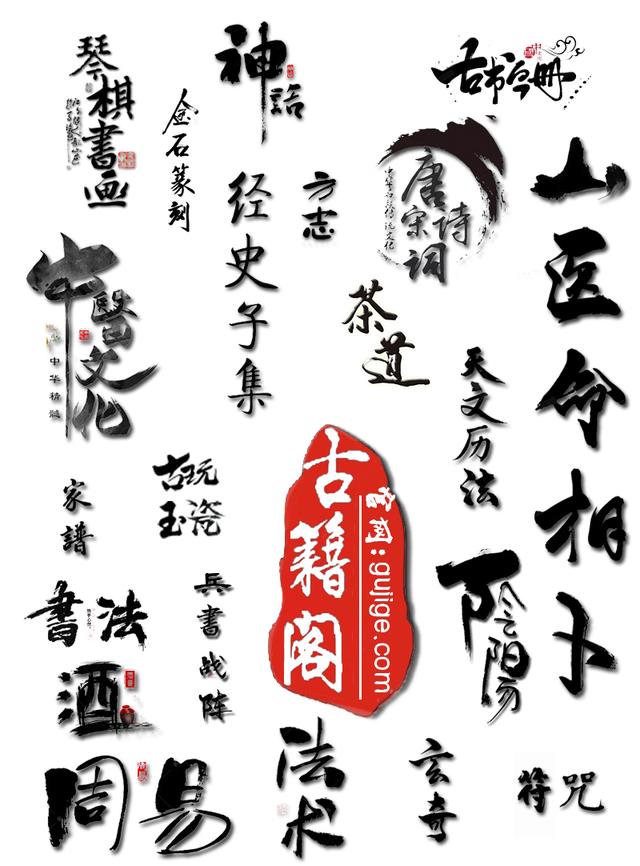 琴棋书画
神話
古书今册
金石篆刻
经史子集
方志
唐诗
宋词
山医命相卜
中醫文化
中华精髓
茶道
天文历法
家譜
古玩
玉瓷
古籍阁
官网:gujige.com
陰陽
書法
兵書战阵
酒
周易
法术
玄奇
符咒